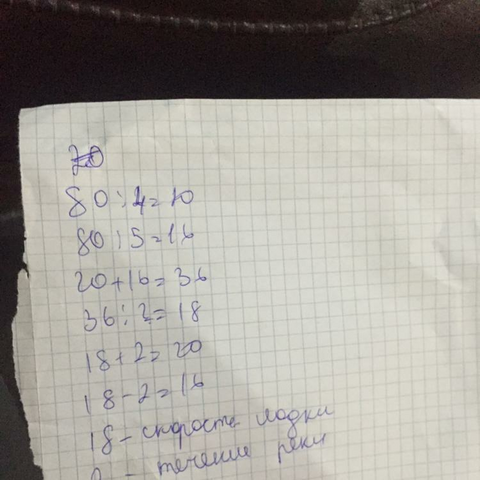 20
80:4=20
80:5=16
20+16=36
36:2=18
18+2=20
18-2=16
18-скорость лодки
2 - течение реки